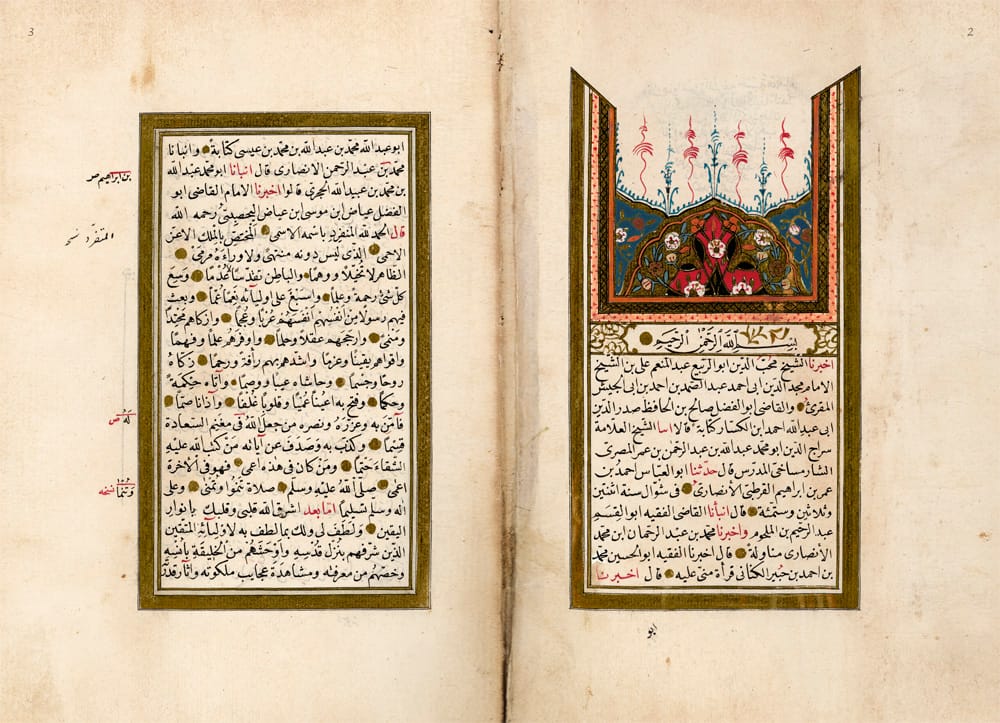 2
بسم الله الرحمن الرحيم
اخبرنا الشيخ محب الدين ابو الربيع عبد المنعم على بن الشيخ
الامام مجد الدين ابى احمد عبد الصمد بن احمد بن ابى الجيش
المقرئ والقاضى ابو الفضل صالح بن الحافظ صدر الدين
ابى عبد الله احمد ابن الكسار كتابة قالا اسا الشيخ العلامة
سراج الدين ابو محمد عبد الله بن عبد الرحمن بن عمر المصرى
الشارمساحى المدرس قال حدثنا ابو العباس احمد بن
عمر بن ابراهيم القرطبى الأنصارى فى شؤال سنة اثنتين
وثلاثين وستمئة قال انبأنا القاضى الفقيه ابو القسم
عبد الرحيم بن الملجوم واخبرنا محمد بن عبد الرحمان ابن محمد
الأنصارى مناولة قال اخبرنا الفقيه ابو الحسين محمد
بن احمد بن جبير الكنانى قرأة منى عليه قال اخبرنا
ابو
3
ابو عبد الله محمد بن عبد الله بن محمد بن عيسى كتابة وانبانا
محمد بن عبد الرحمن الانصارى قال انبانا ابو محمد عبد الله
بن محمد بن عبيد الله الحجرى قالوا اخبرنا الامام القاضى ابو
الفضل عياض ابن موسى ابن عياض اليحصبى رحمه الله
قال الحمد لله المنفرد باسمه الاسمى المختص بالملك الاعز
الاحمى الذى ليس دونه منتهى ولا وراءه مرمى
الظاهر لا تخيلا ووهما والباطن تقدسا لا عدما وسع
كل شئ رحمة وعلما واسبغ على اوليائه نعما عما وبعث
فيهم رسولا من انفسهم انفسهم عربا وعجما وازكاهم محتدا
ومنمى وارجحهم عقلا وحلما واوفرهم علما وفهما
واقواهم يقينا وعزما واشدهم بهم رأفة ورحما زكاه
روحا وجسما وحاشاه عيبا ووصما وآتاه حكمة
وحكما وفتح به اعينا عميا وقلوبا غلفا وآذانا صما
فآمن به وعزره ونصره من جعل الله فى مغنم السعادة
قسما وكذب به وصدف عن آياته من كتب الله عليه
الشقاء حتما ومن كان فى هذه اعمى فهو فى الآخرة
اعمى صلى الله عليه وسلم صلاة تنموا وتنمى وعلى
آله وسلم تسليما اما بعد اشرق الله قلبى وقلبك بانوار
اليقين ولطف لى ولك بما لطف به لاوليائه المتقين
الذين شرفهم بنزل قدسه واوحشهم من الخليقة بانسه
وخصهم من معرفته ومشاهدة عجايب ملكوته واثار قدر
بن ابراهيم صر
المتفرد نسخه
له ص
نسخه